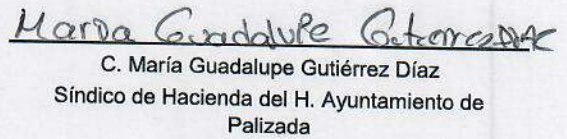 Maria Guadalupe Gutierrez Diaz
C. María Guadalupe Gutiérrez Díaz
Síndico de Hacienda del H. Ayuntamiento de
Palizada